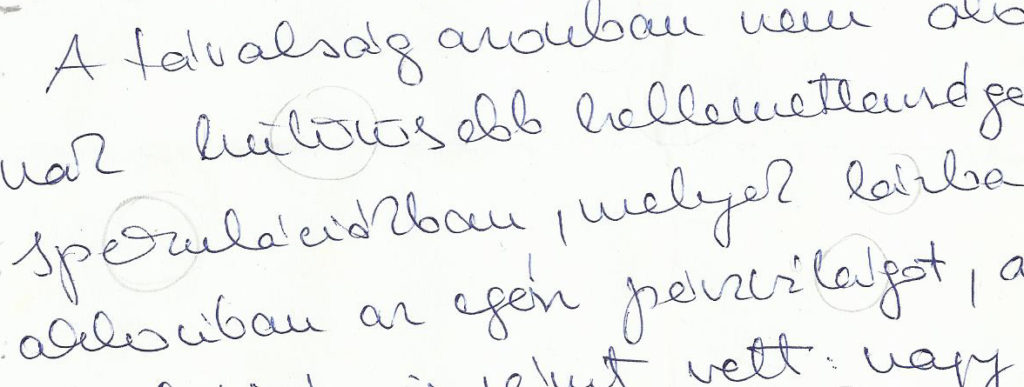 A távolság azonban nem oko
nak különösebb kellemetlensége
spekulációkban, melyek lázba
akkoriban az egész pénzvilágot, a
vett: nagy